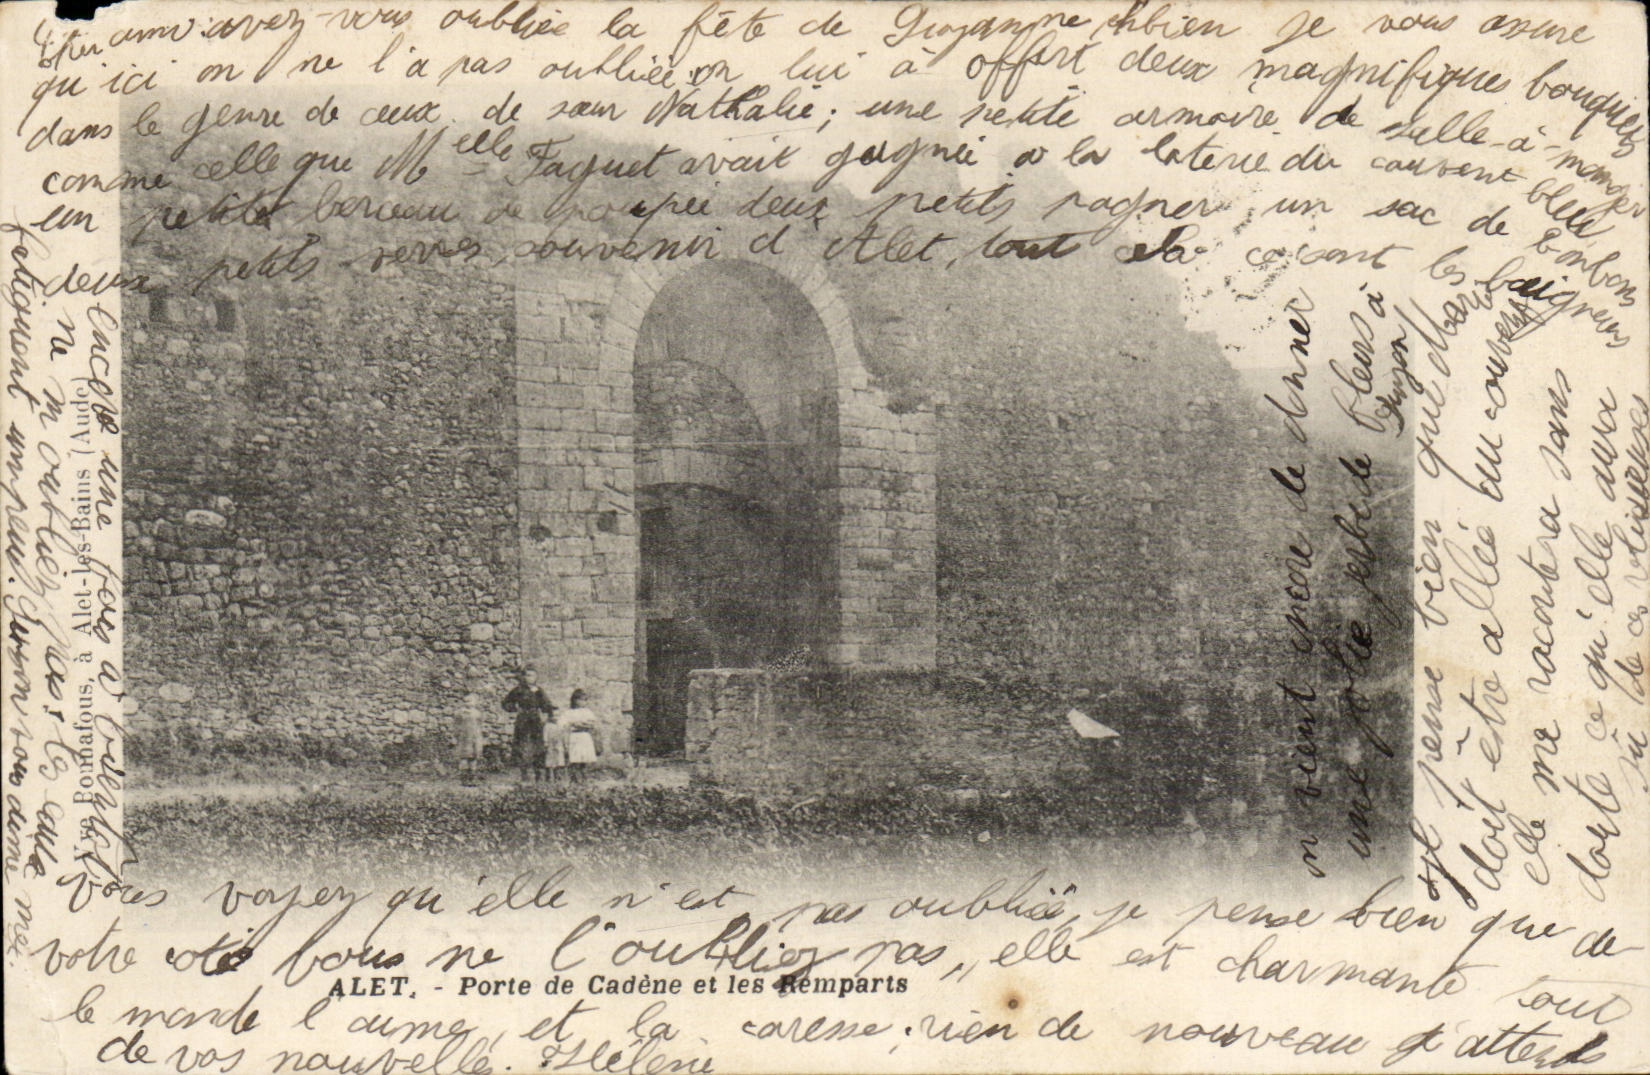 Cher ami: avez-vous oubliée la fête de Suzanne, ehbien je vous assure
qu'ici on ne l'a pas oubliée; on lui à offert deux magnifiques bouquets
dans le genre de ceux de sœur Nathalie; une petite armoire de salle-à-manger
comme celle que Melle Faguet avait gagnée a la loterie du couvent bleu
un petite berceau de poupée deux petits un sac de bonbons
deux petits verres souvenir d'Alet, tout cela les baigneurs
on vient encore de donner
une jolie gerbe de fleurs à
Suzon
et pense bien que
doit être allée au couvent
elle me racontera sans
doute ce qu'elle aura
vu de ces religieuses
Vous voyez qu'elle n'est pas oubliée, je pense bien que de
votre coté vous ne l'oubliez pas, elle est charmante tout
le monde l'aime, et la caresse; rien de nouveau j'attends
de vos nouvelles. Hélène
Encore une fois à bientôt
ne m'oubliez pas,
fatiguent un peu. Suzon vous aime
Vve Bonnafous, à Alet-les-Bains (Aude)
ALET. - Porte de Cadène et les Remparts